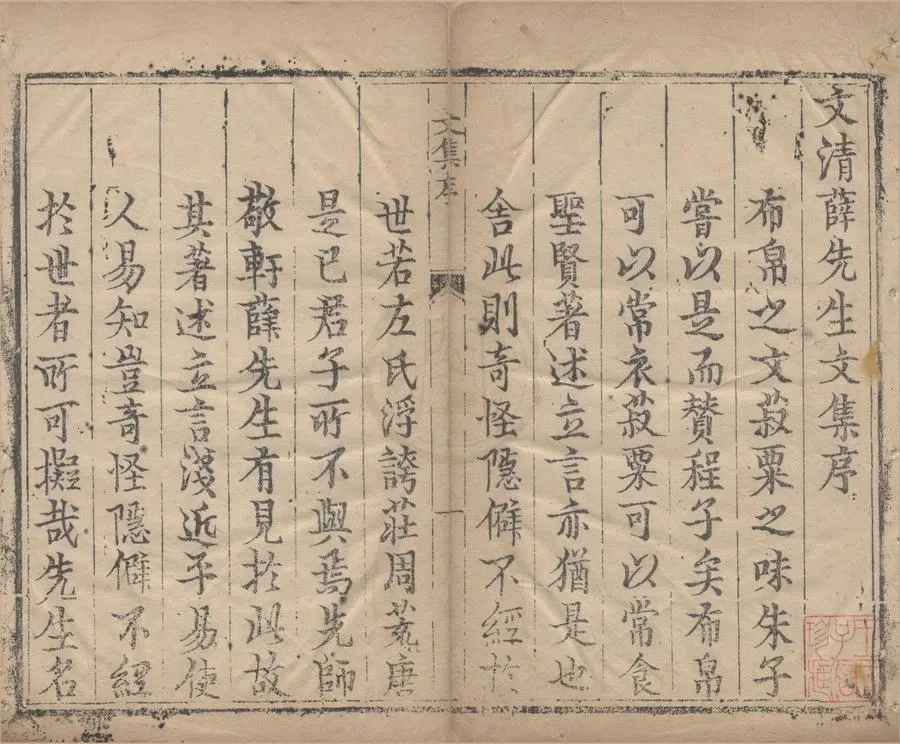 文清薛先生文集序
布帛之文菽粟之味朱子
嘗以是而贊程子矣布帛
可以常衣菽粟可以常食
聖賢著述立言亦猶是也
舍此則奇怪隱僻不經於
文集序
一
世若左氏浮誇莊周荒唐
是已君子所不與焉先師
敬軒薛先生有見於此故
其著述立言淺近平易使
人易知豈奇怪隱僻不經
於世者所可擬哉先生名